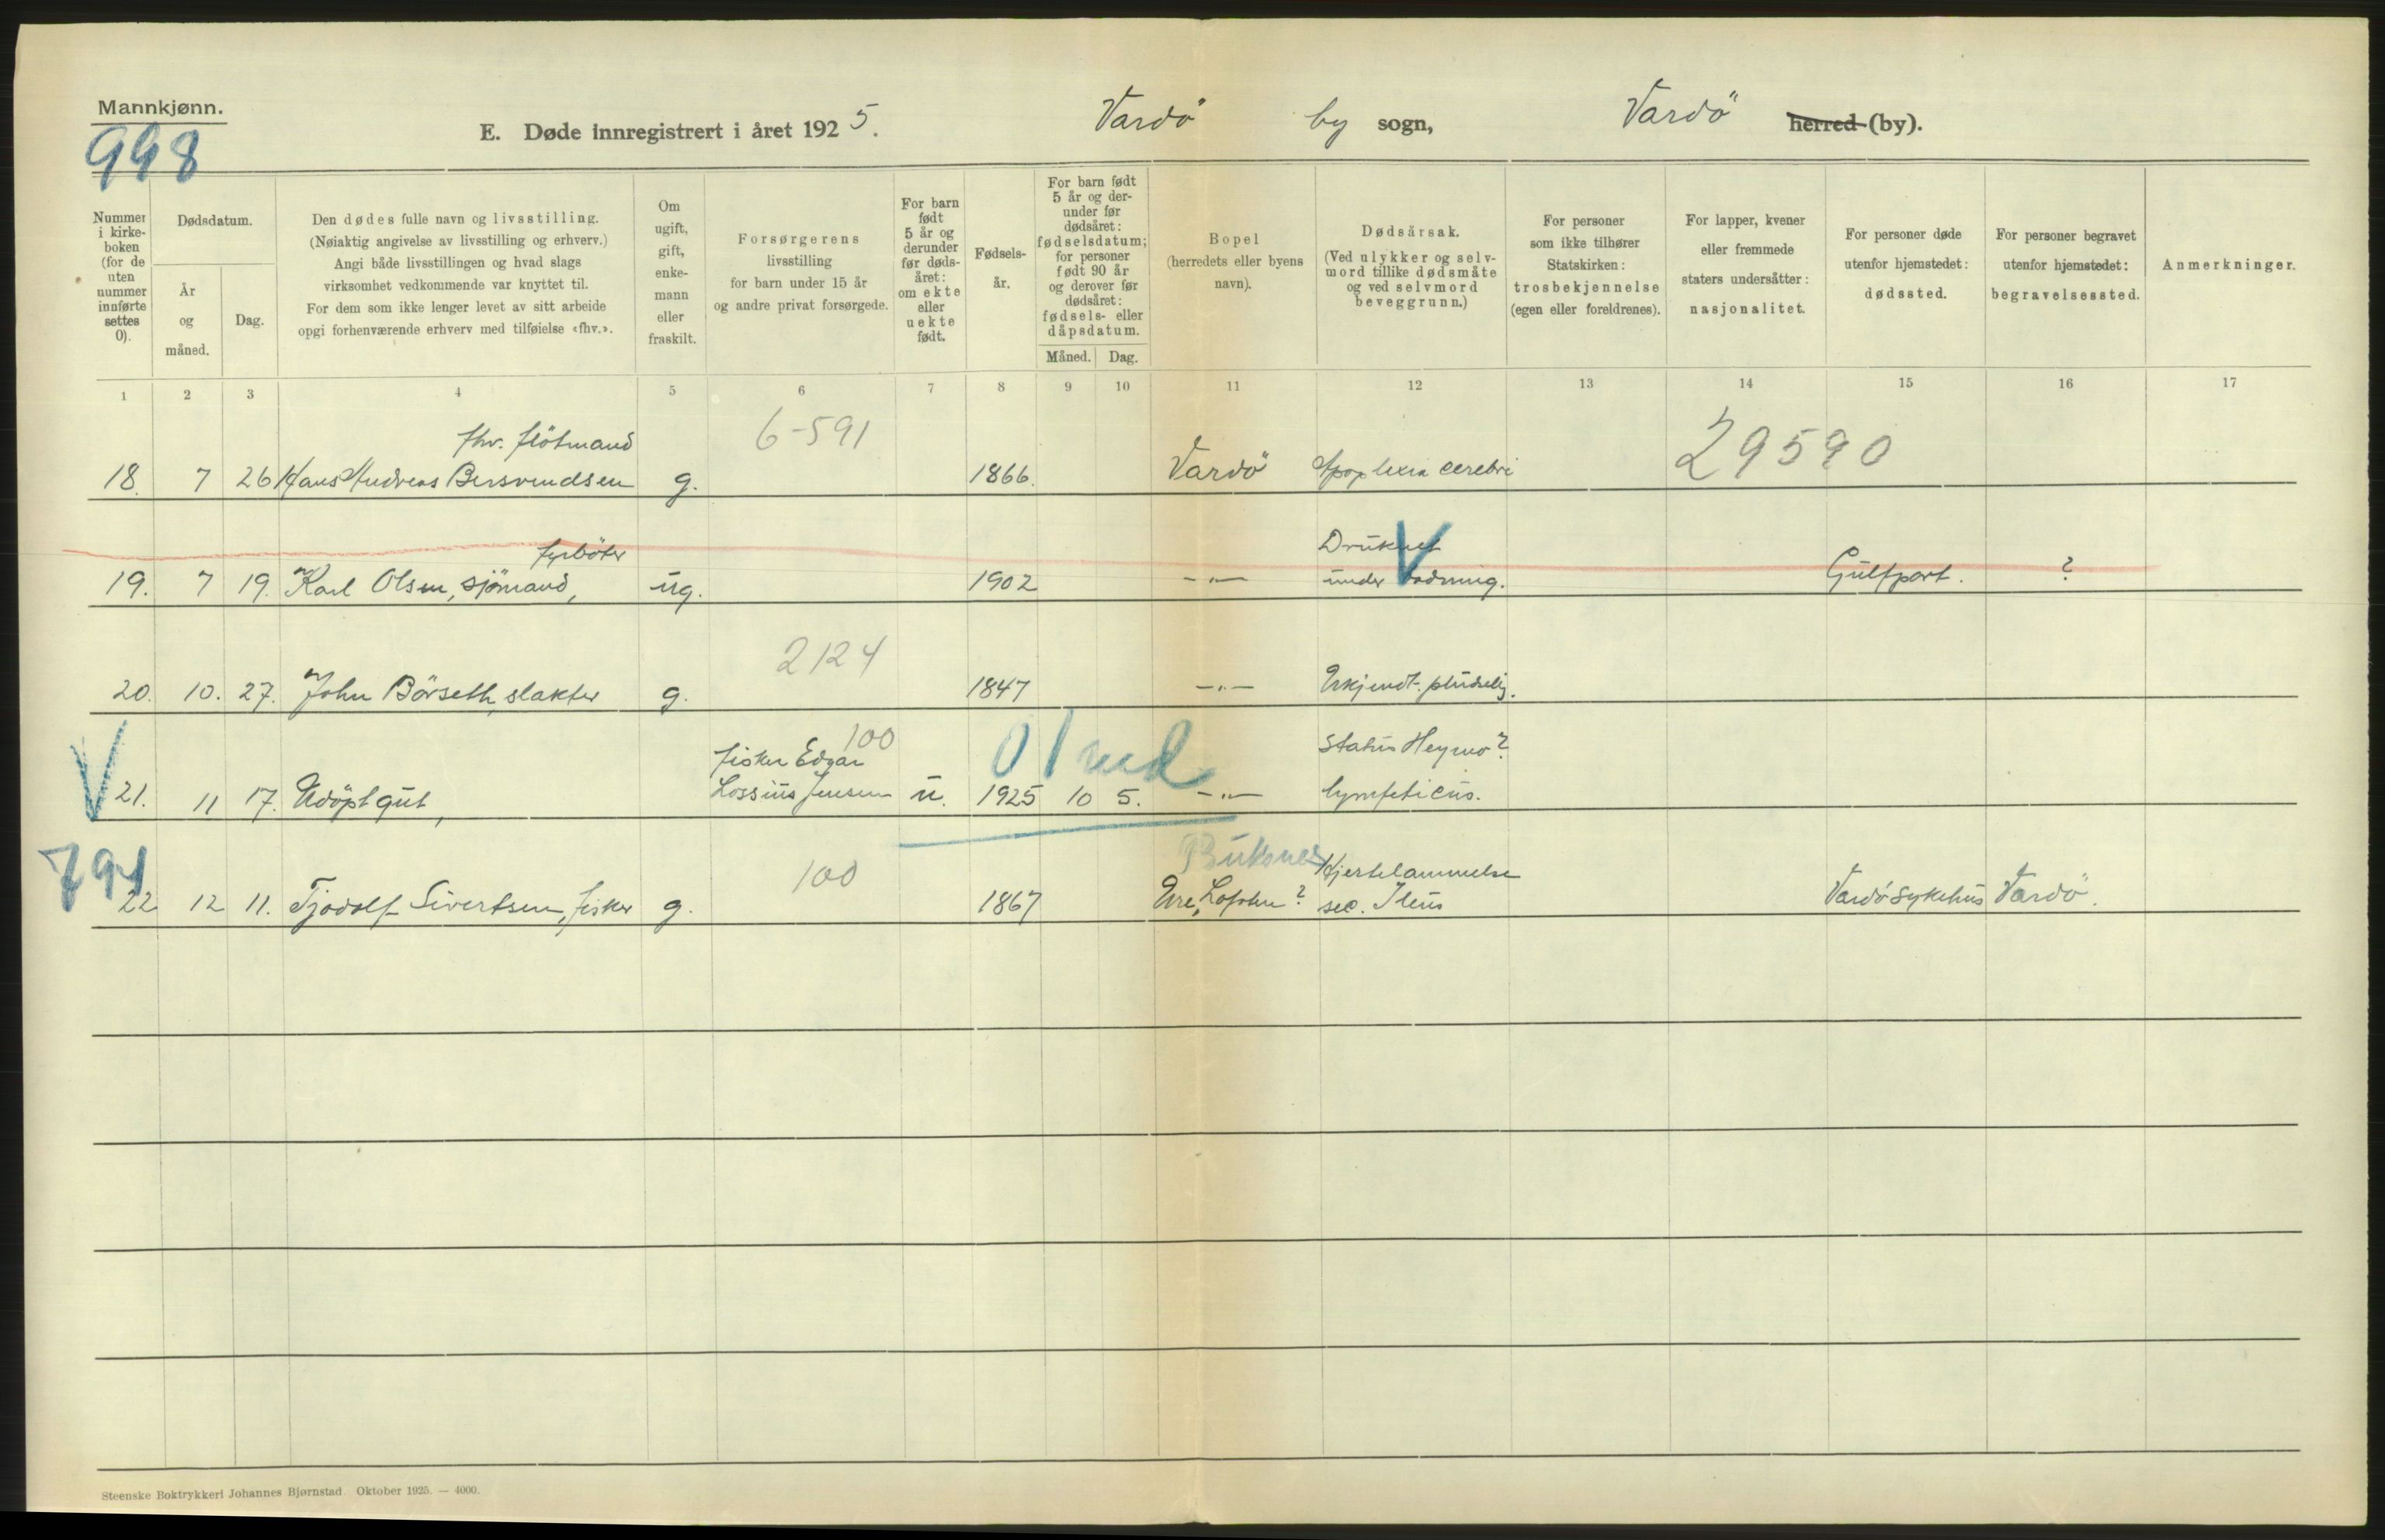 Mannkjønn.
998
E. Døde innregistrert i året 1925. Vardö by sogn, Vardö herred (by).
Nummer i kirkeboken (for de uten nummer innførte settes 0).
Dødsdatum.
År og måned.
Dag.
Den dødes fulle navn og livsstilling.
(Nøiaktig angivelse av livsstilling og erhverv.)
Angi både livsstillingen og hvad slags
virksomhet vedkommende var knyttet til.
For dem som ikke lenger levet av sitt arbeide
opgi forhenværende erhverv med tilføielse «fhv.».
Om ugift, gift, enkemann eller fraskilt.
Forsørgerens
livsstilling
for barn under 15 år
og andre privat forsørgede.
For barn født 5 år og derunder før dødsåret: om ekte eller uekte født.
Fødselsår.
For barn født 5 år og derunder før dødsåret: fødselsdatum; for personer født 90 år og derover før dødsåret: fødsels- eller dåpsdatum.
Måned. Dag.
Bopel
(herredets eller byens
navn).
Dødsårsak.
(Ved ulykker og selvmord tillike dødsmåte og ved selvmord beveggrunn.)
For personer
som ikke tilhører
Statskirken:
trosbekjennelse
(egen eller foreldrenes).
For lapper, kvener
eller fremmede
staters undersåtter:
nasjonalitet.
For personer døde
utenfor hjemstedet:
dødssted.
For personer begravet
utenfor hjemstedet:
begravelsessted.
Anmerkninger.
1 2 3 4 5 6 7 8 9 10 11 12 13 14 15 16 17
fhv. flötmand 6-591 29590
18. 7 26 Hans Andreas Bersvendsen g. 1866. Vardö Apoplexia cerebri
fyrböter Druknet V
19. 7 19. Karl Olsen, sjömand, ug. 1902 —"— under badning. Gulfport. ?
2124
20. 10. 27. John Börseth, slakter g. 1847 —"— Ukjendt. pludselig.
V 100 fisker Edgar 0 1 md Status Heymo?
21. 11 17. Udöpt gut, Lossius Jensen u. 1925 10 5. —"— lymfeticus.
794 100 Buksnes Hjertelammelse
22 12 11. Tjodolf Sivertsen, fisker g. 1867 Ure, Lofoten? sec. Ileus Vardö sykehus Vardö.
Steenske Boktrykkeri Johannes Bjørnstad. Oktober 1925. — 4000.